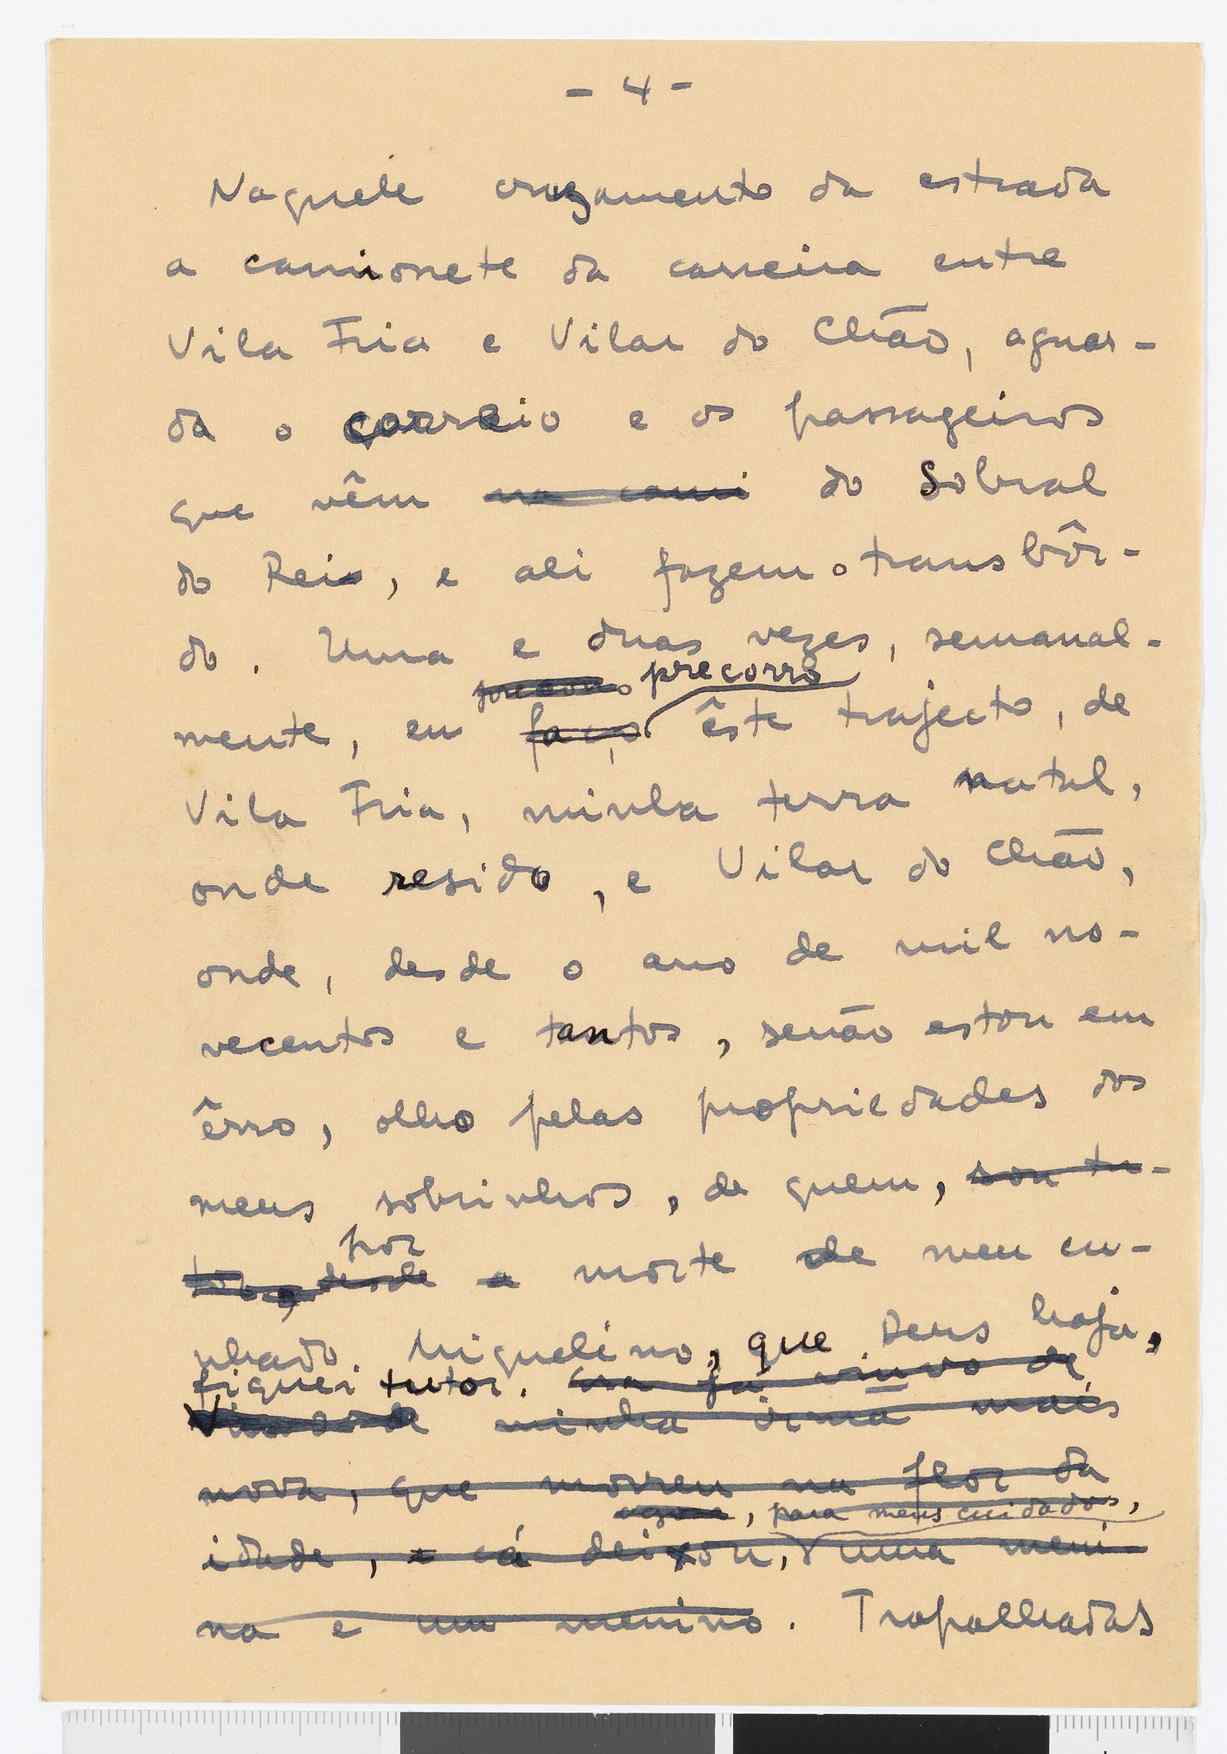 - 4 -
Naquele cruzamento da estrada
a camionete da carreira entre
Vila Fria e Vilar do Chão, aguar-
da o correio e os passageiros
que vêm na cami do Sobral
do Rei, e ali fazem o transbôr-
do. Uma e duas vezes, semanal-
precorro
mente, eu faço êste trajecto, de
Vila Fria, minha terra natal,
onde resido, e Vilar do Chão,
onde, desde o ano de mil no-
vecentos e tantos, senão estou em
êrro, olho pelas propriedades dos
meus sobrinhos, de quem, sou tu-
por
tor, desde a morte de meu cu-
nhado Miguelino, que Deus haja,
fiquei tutor. era já viuvo de
minha irmã mais
nova, que morreu na flor da
, para meus cuidados,
idade, e cá deixou, uma meni-
na e um menino. Trapalhadas